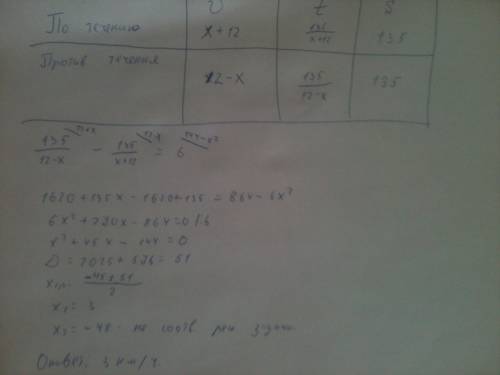 v t S
По течению x+12 135/(x+12) 135
Против течения 12-x 135/(12-x) 135
135/(12-x) ^12+x - 135/(x+12) ^12-x = 6 ^144-x²
1620+135x-1620+135=864-6x²
6x²+270x-864=0 |:6
x²+45x-144=0
D=2025+576=51
x₁,₂ = (-45±51)/2
x₁=3
x₂=-48 - не соотв реш задачи
Ответ: 3 км/ч.